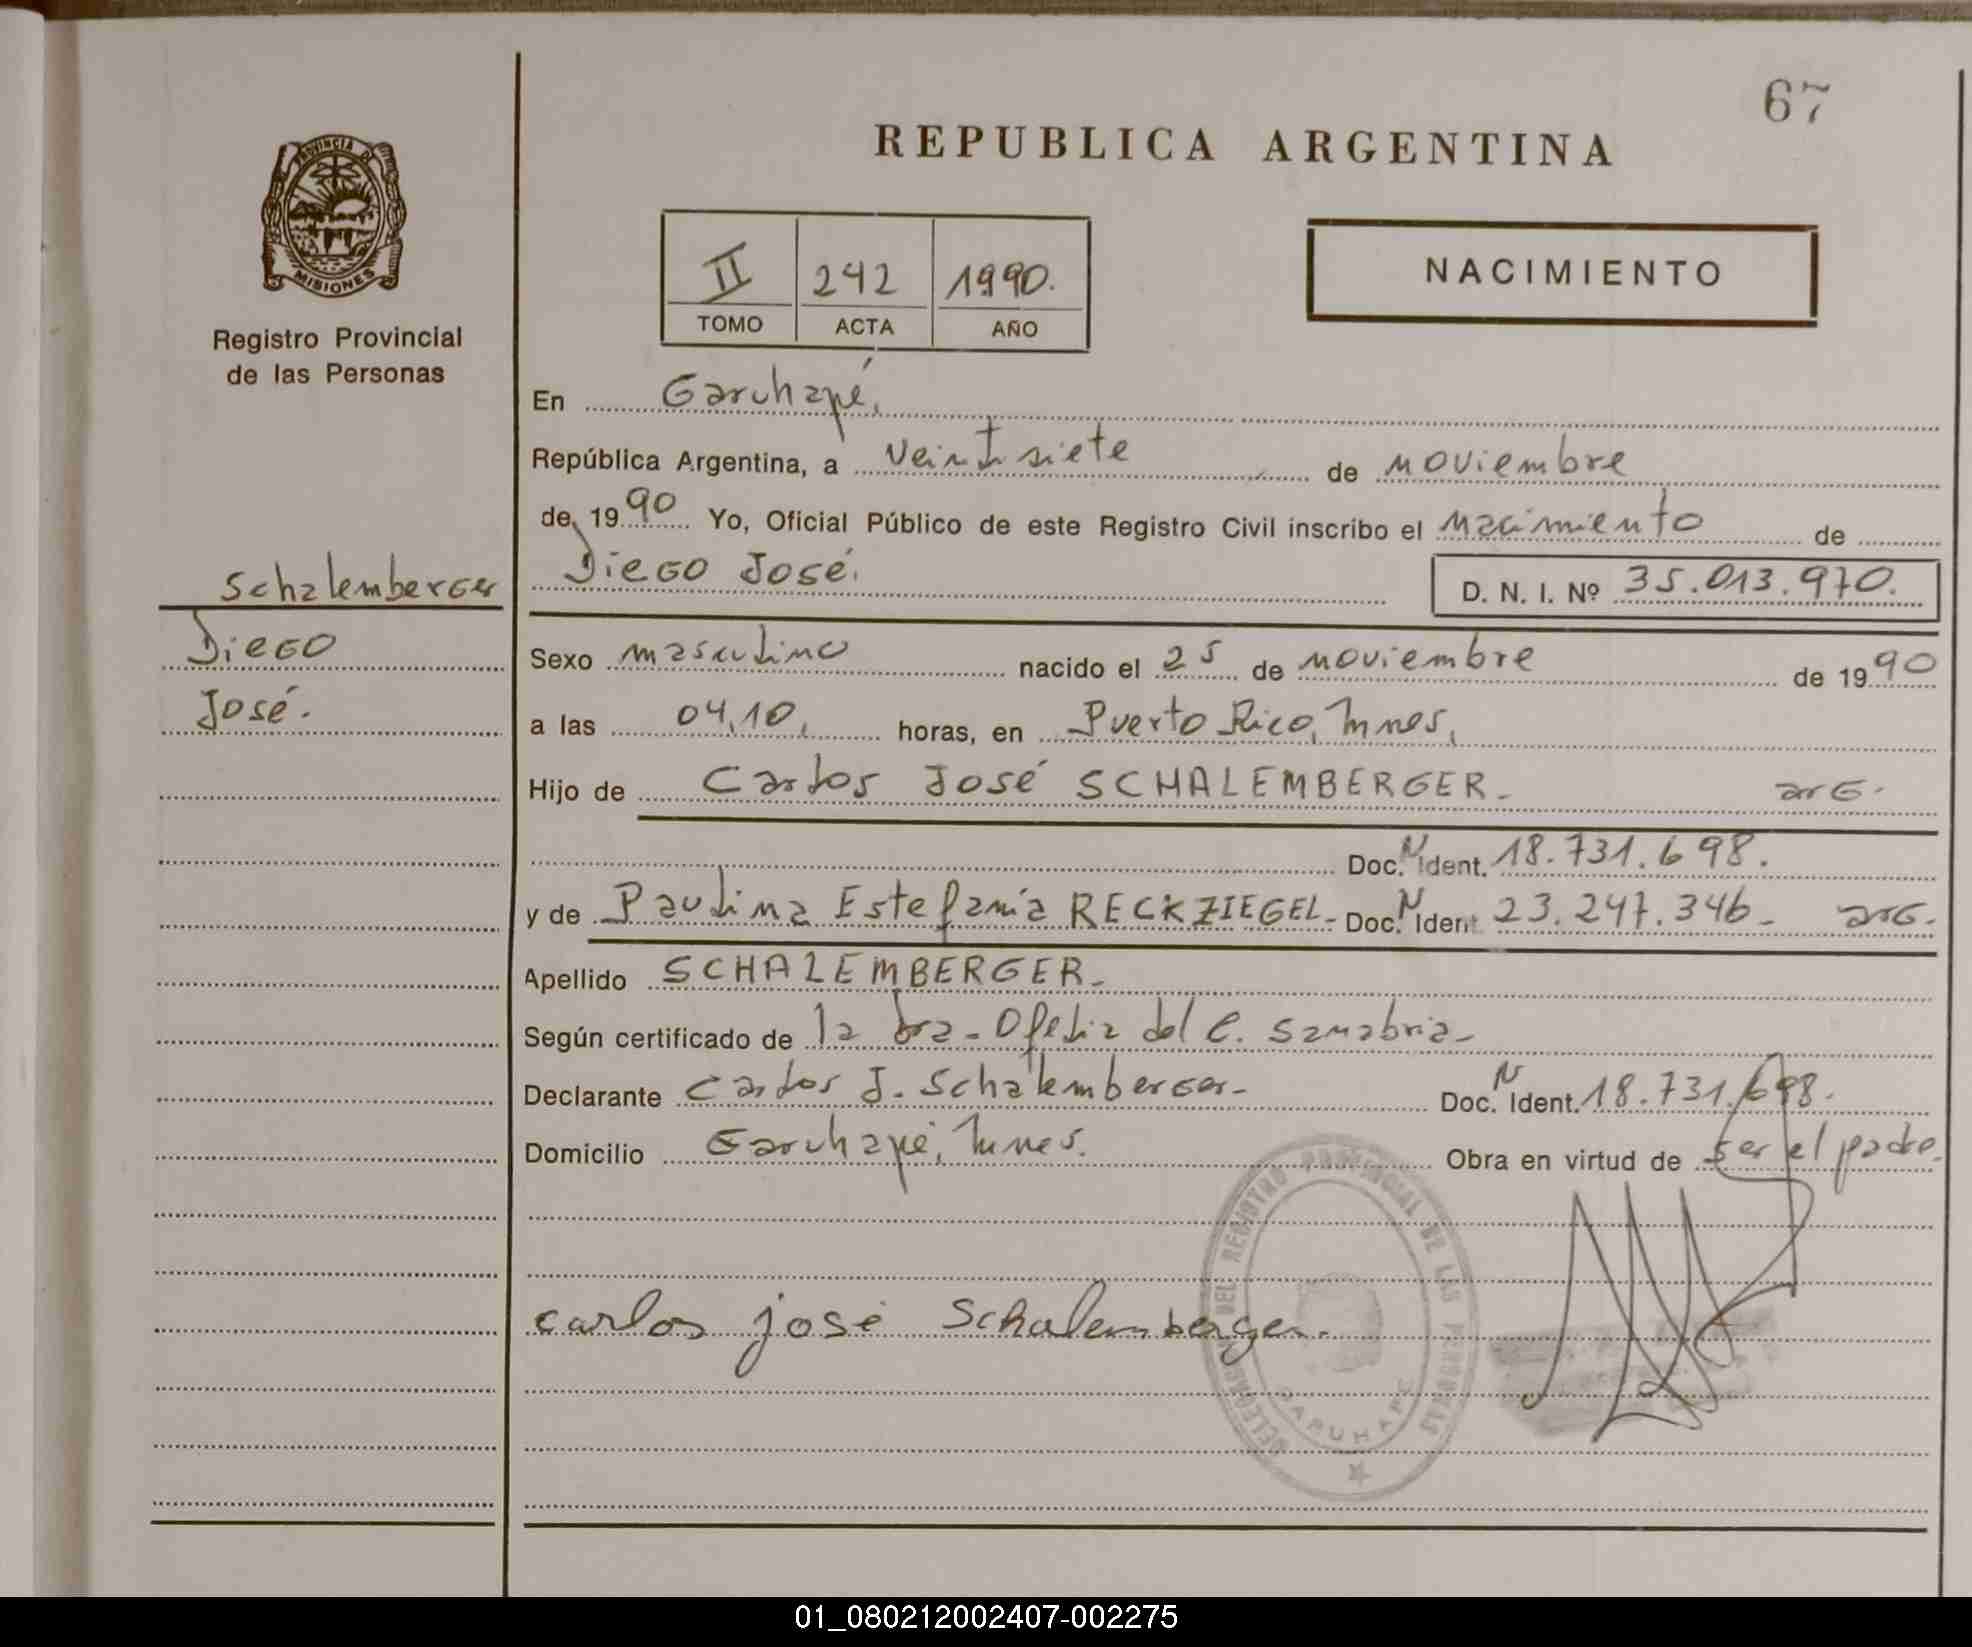 67
REPUBLICA ARGENTINA
PROVINCIA DE
MISIONES
NACIMIENTO
II 242 1990.
TOMO ACTA AÑO
Registro Provincial
de las Personas
En Garuhapé,
República Argentina, a veintisiete de noviembre
de 1990 Yo, Oficial Público de este Registro Civil inscribo el nacimiento de
Schalemberger
Diego José.
D. N. I. Nº 35.013.970.
Diego
Sexo masculino nacido el 25 de noviembre de 1990
José.
a las 04,10, horas, en Puerto Rico, Mnes,
Hijo de Carlos José SCHALEMBERGER- arG.
Doc. N Ident. 18.731.698.
y de Paulina Estefanía RECKZIEGEL- Doc. N Ident 23.247.346- arG.
Apellido SCHALEMBERGER-
Según certificado de la dra- Ofelia del C. Sanabria-
Declarante Carlos J. Schalemberger- Doc. N Ident. 18.731.698.
Domicilio Garuhapé, Mnes. Obra en virtud de ser el padre.
DEL REGISTRO PROVINCIAL DE LAS PERSONAS
GARUHAPE
carlos josé Schalemberger.
01_080212002407-002275